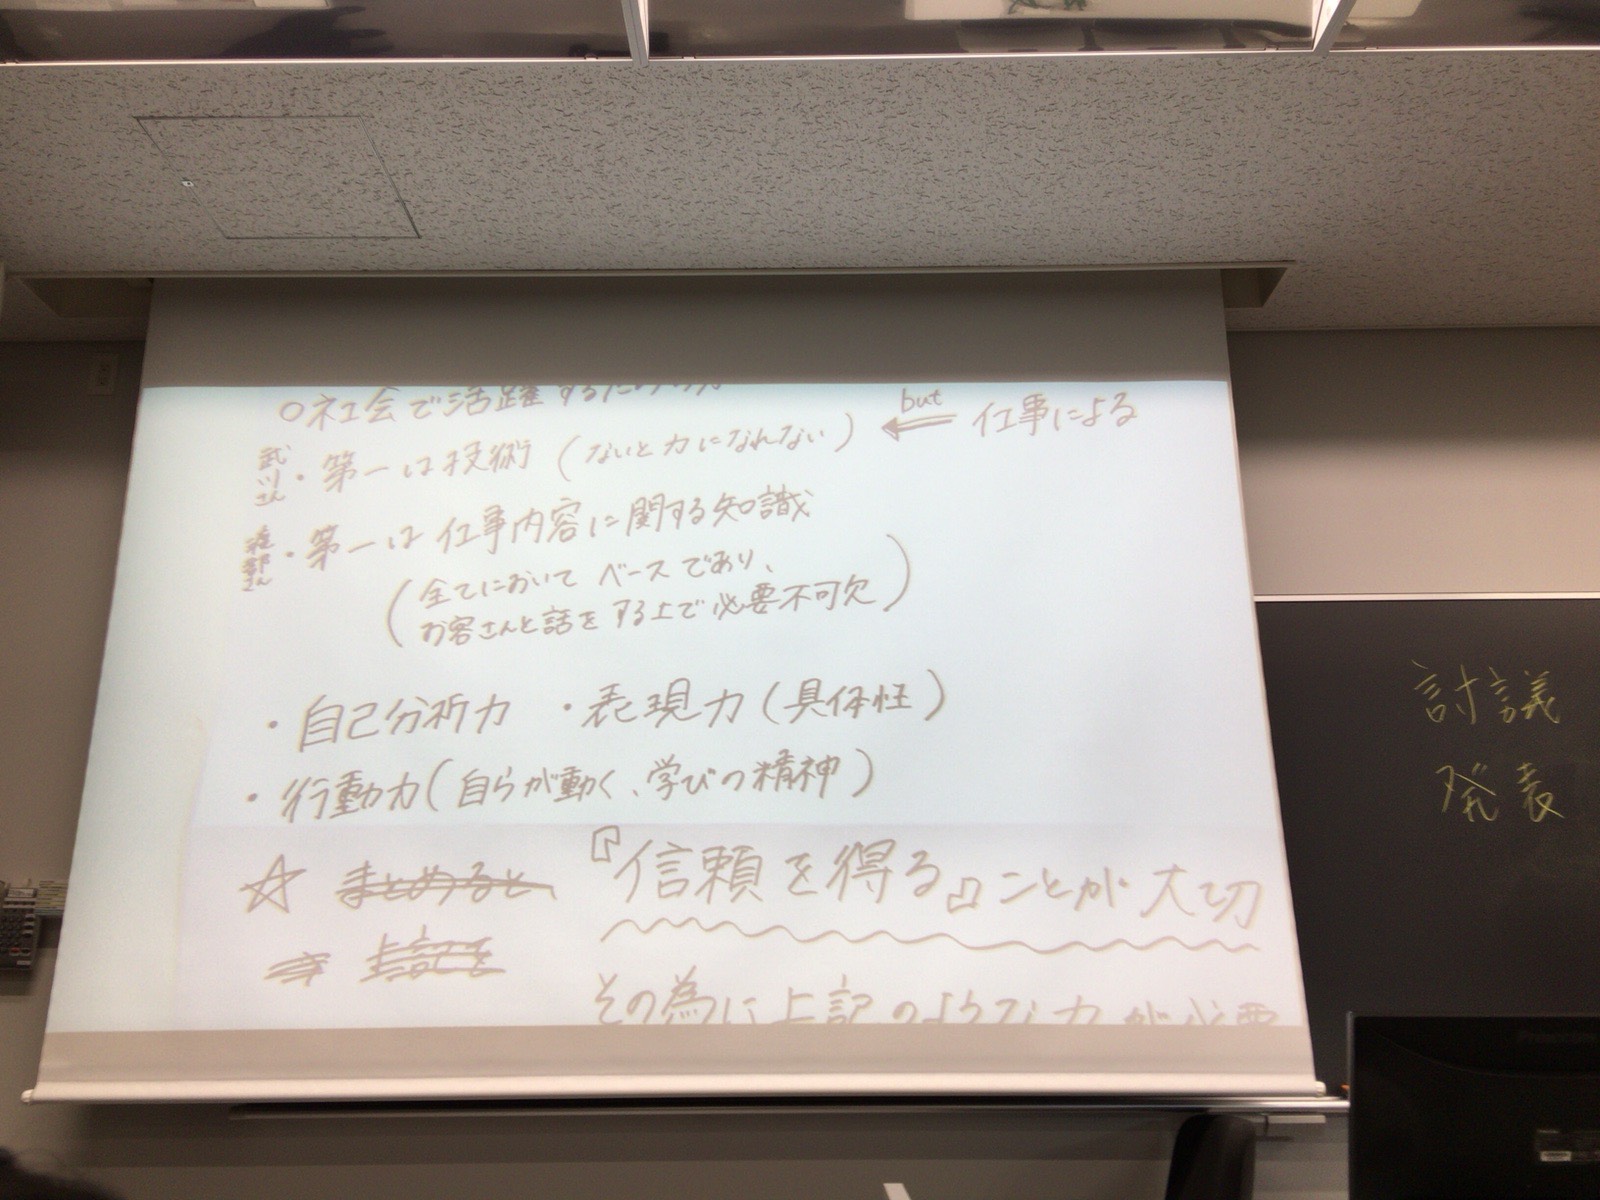 ○社会で活躍するための力
武川さん・第一は技術(ないと力になれない) but ⇐ 仕事による
・第一は仕事内容に関する知識
(全てにおいてベースであり、
お客さんと話をする上で必要不可欠)
・自己分析力 ・表現力(具体性)
・行動力(自らが動く、学びの精神)
☆ まとめると、『信頼を得る』ことが大切
⇒ 上記を
その為に上記のような力が必要
討議
発表